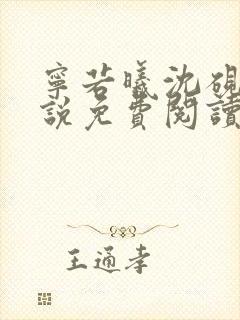 寧若曦沈硯
說免費閱讀
王通孝